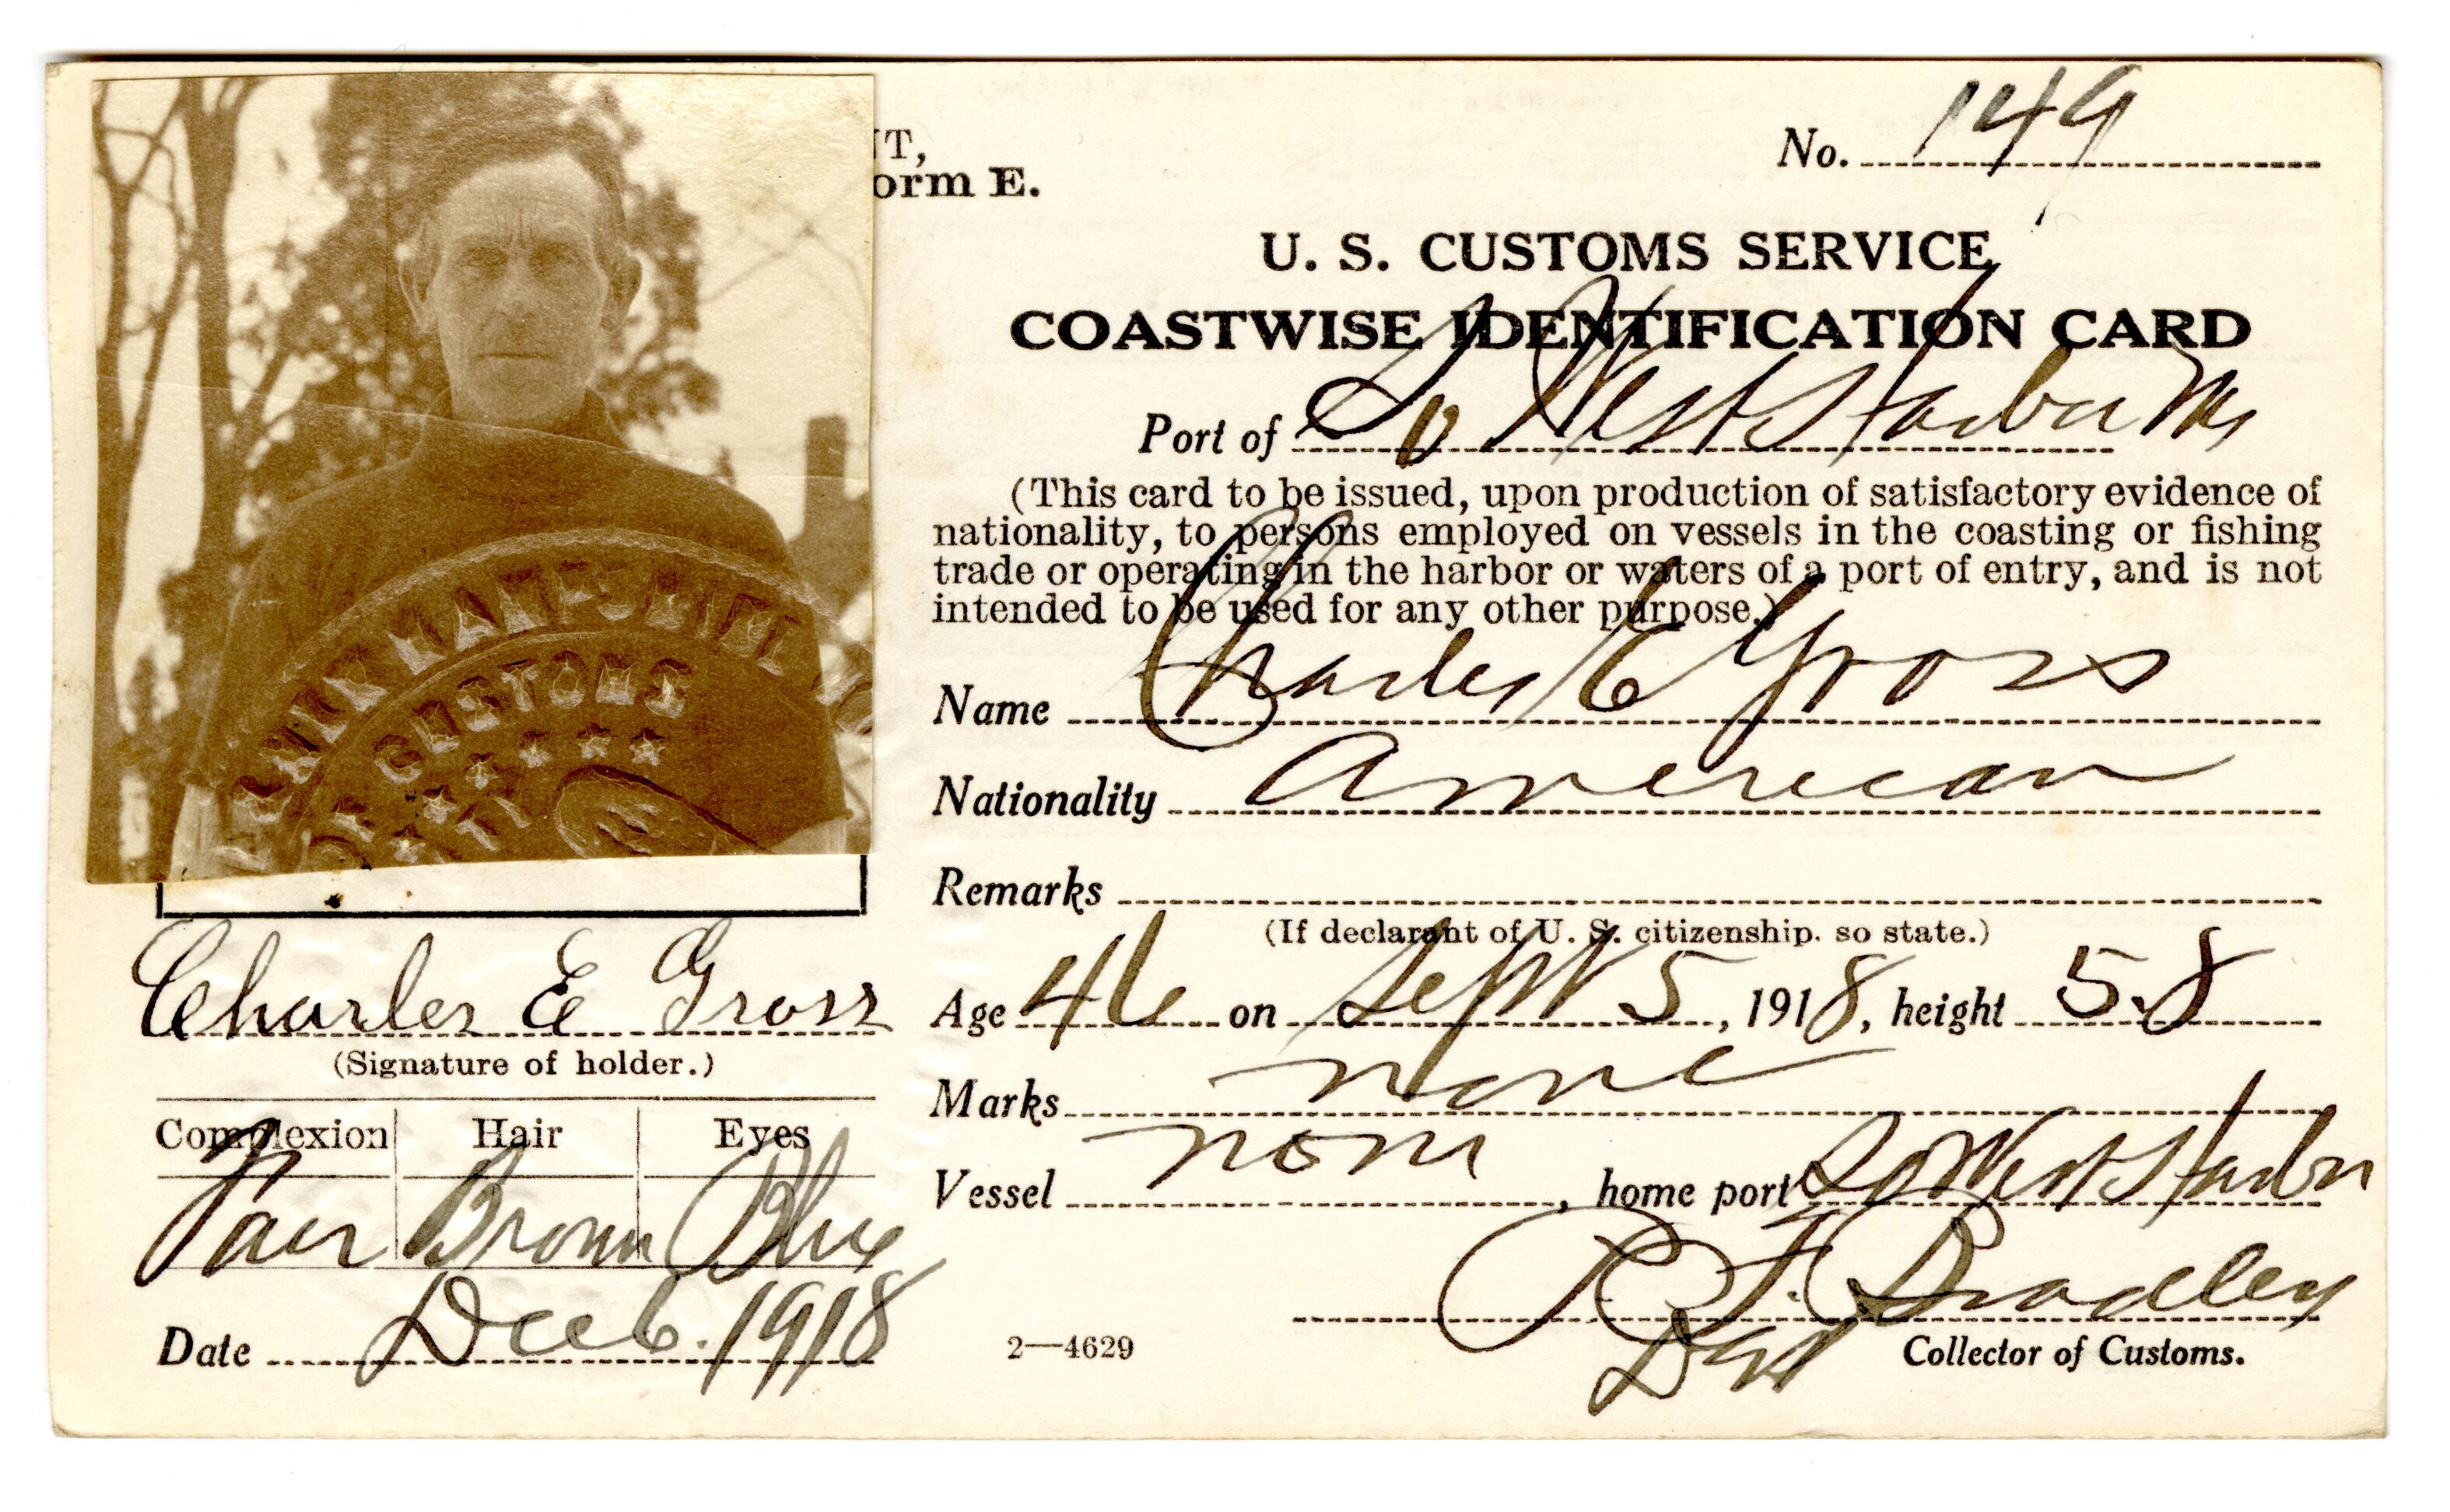 NT,
orm E.
No. 149
U. S. CUSTOMS SERVICE
COASTWISE IDENTIFICATION CARD
Port of So West Harbor Me
(This card to be issued, upon production of satisfactory evidence of
nationality, to persons employed on vessels in the coasting or fishing
trade or operating in the harbor or waters of a port of entry, and is not
intended to be used for any other purpose.)
Name Charles E Gross
Nationality American
Remarks
(If declarant of U. S. citizenship, so state.)
Age 46 on Sept 5, 1918, height 5.8
Marks none
Vessel none, home port So West Harbor
R F Bradley
Collector of Customs.
CUSTOMS
Charles E Gross
(Signature of holder.)
Complexion Hair Eyes
Fair Brown Blue
Date Dec 6. 1918
2—4629